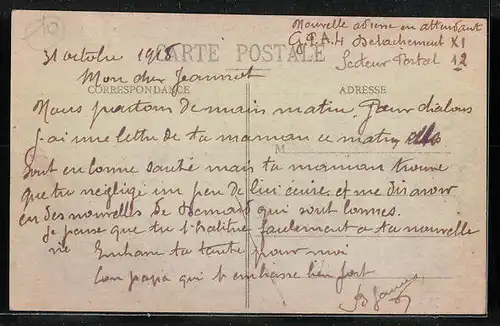 Nouvelle adresse en attendant
31 octobre 1918 CARTE POSTALE G.P.A.4 Detachement XI
Secteur Postal 12
Mon cher Jeannot
CORRESPONDANCE ADRESSE
Nous partons demain matin. Pour
j'ai une lettre de ta maman ce matin elles
M
sont en bonne santé mais ta maman trouve
que tu néglige un peu de lui écrire et me dis avoir
eu des nouvelles de Bernard qui sont bonnes.
Je pense que tu t'habitue facilement a ta nouvelle
vie Embrasse ta tante pour moi
Ton papa qui t'embrasse bien fort